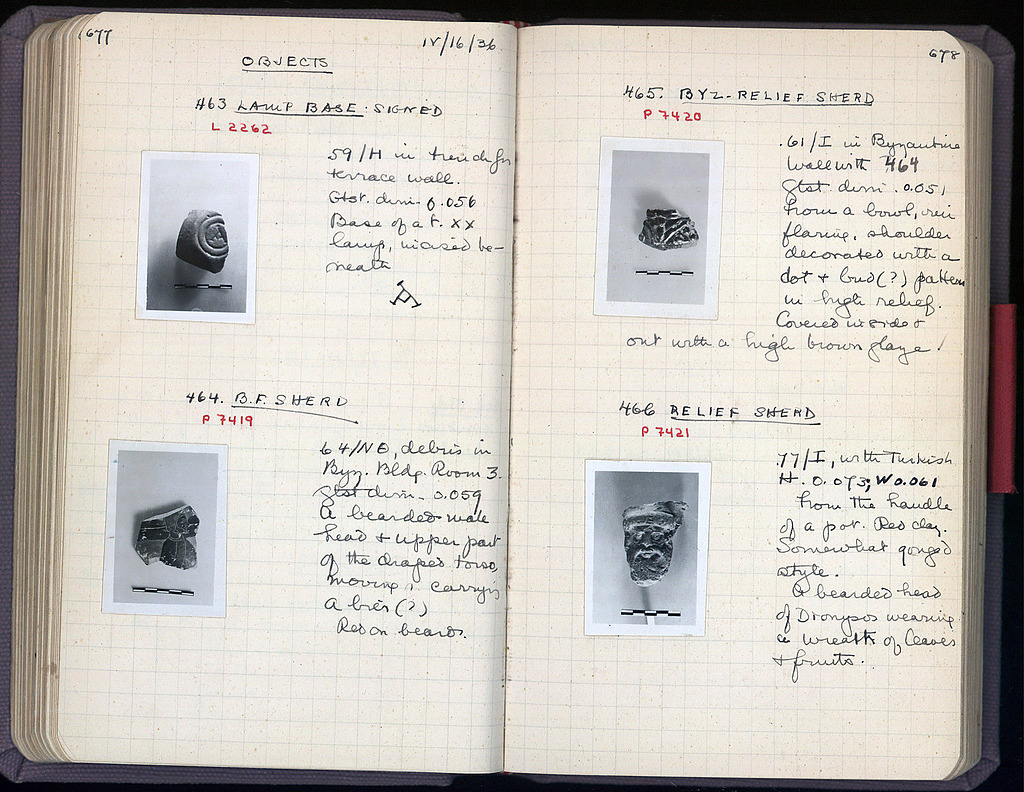 677
IV/16/36
OBJECTS
463 LAMP BASE: SIGNED
L 2262
59/H in trench for
terrace wall.
Gtst. dim. 0.056
Base of a t. XX
lamp, incised be-
neath
464. B.F. SHERD
P 7419
64/ΝΘ, debris in
Byz. Bldg. Room 3.
Gtst dim. 0.059
A bearded male
head + upper part
of the draped torso,
moving carrying
a (?)
Red on beard.
678
465. BYZ. RELIEF SHERD
P 7420
.61/I in Byzantine
Wall with 464
Gtst dim. 0.051
From a bowl, rim
flaring, shoulder
decorated with a
dot + bud(?) pattern
in high relief.
Covered inside +
out with a high brown glaze!
466 RELIEF SHERD
P 7421
77/I, with Turkish
H. 0.073; W 0.061
From the handle
of a pot. Red clay.
Somewhat gouged
style.
A bearded head
of Dionysos wearing
a wreath of leaves
+ fruits.